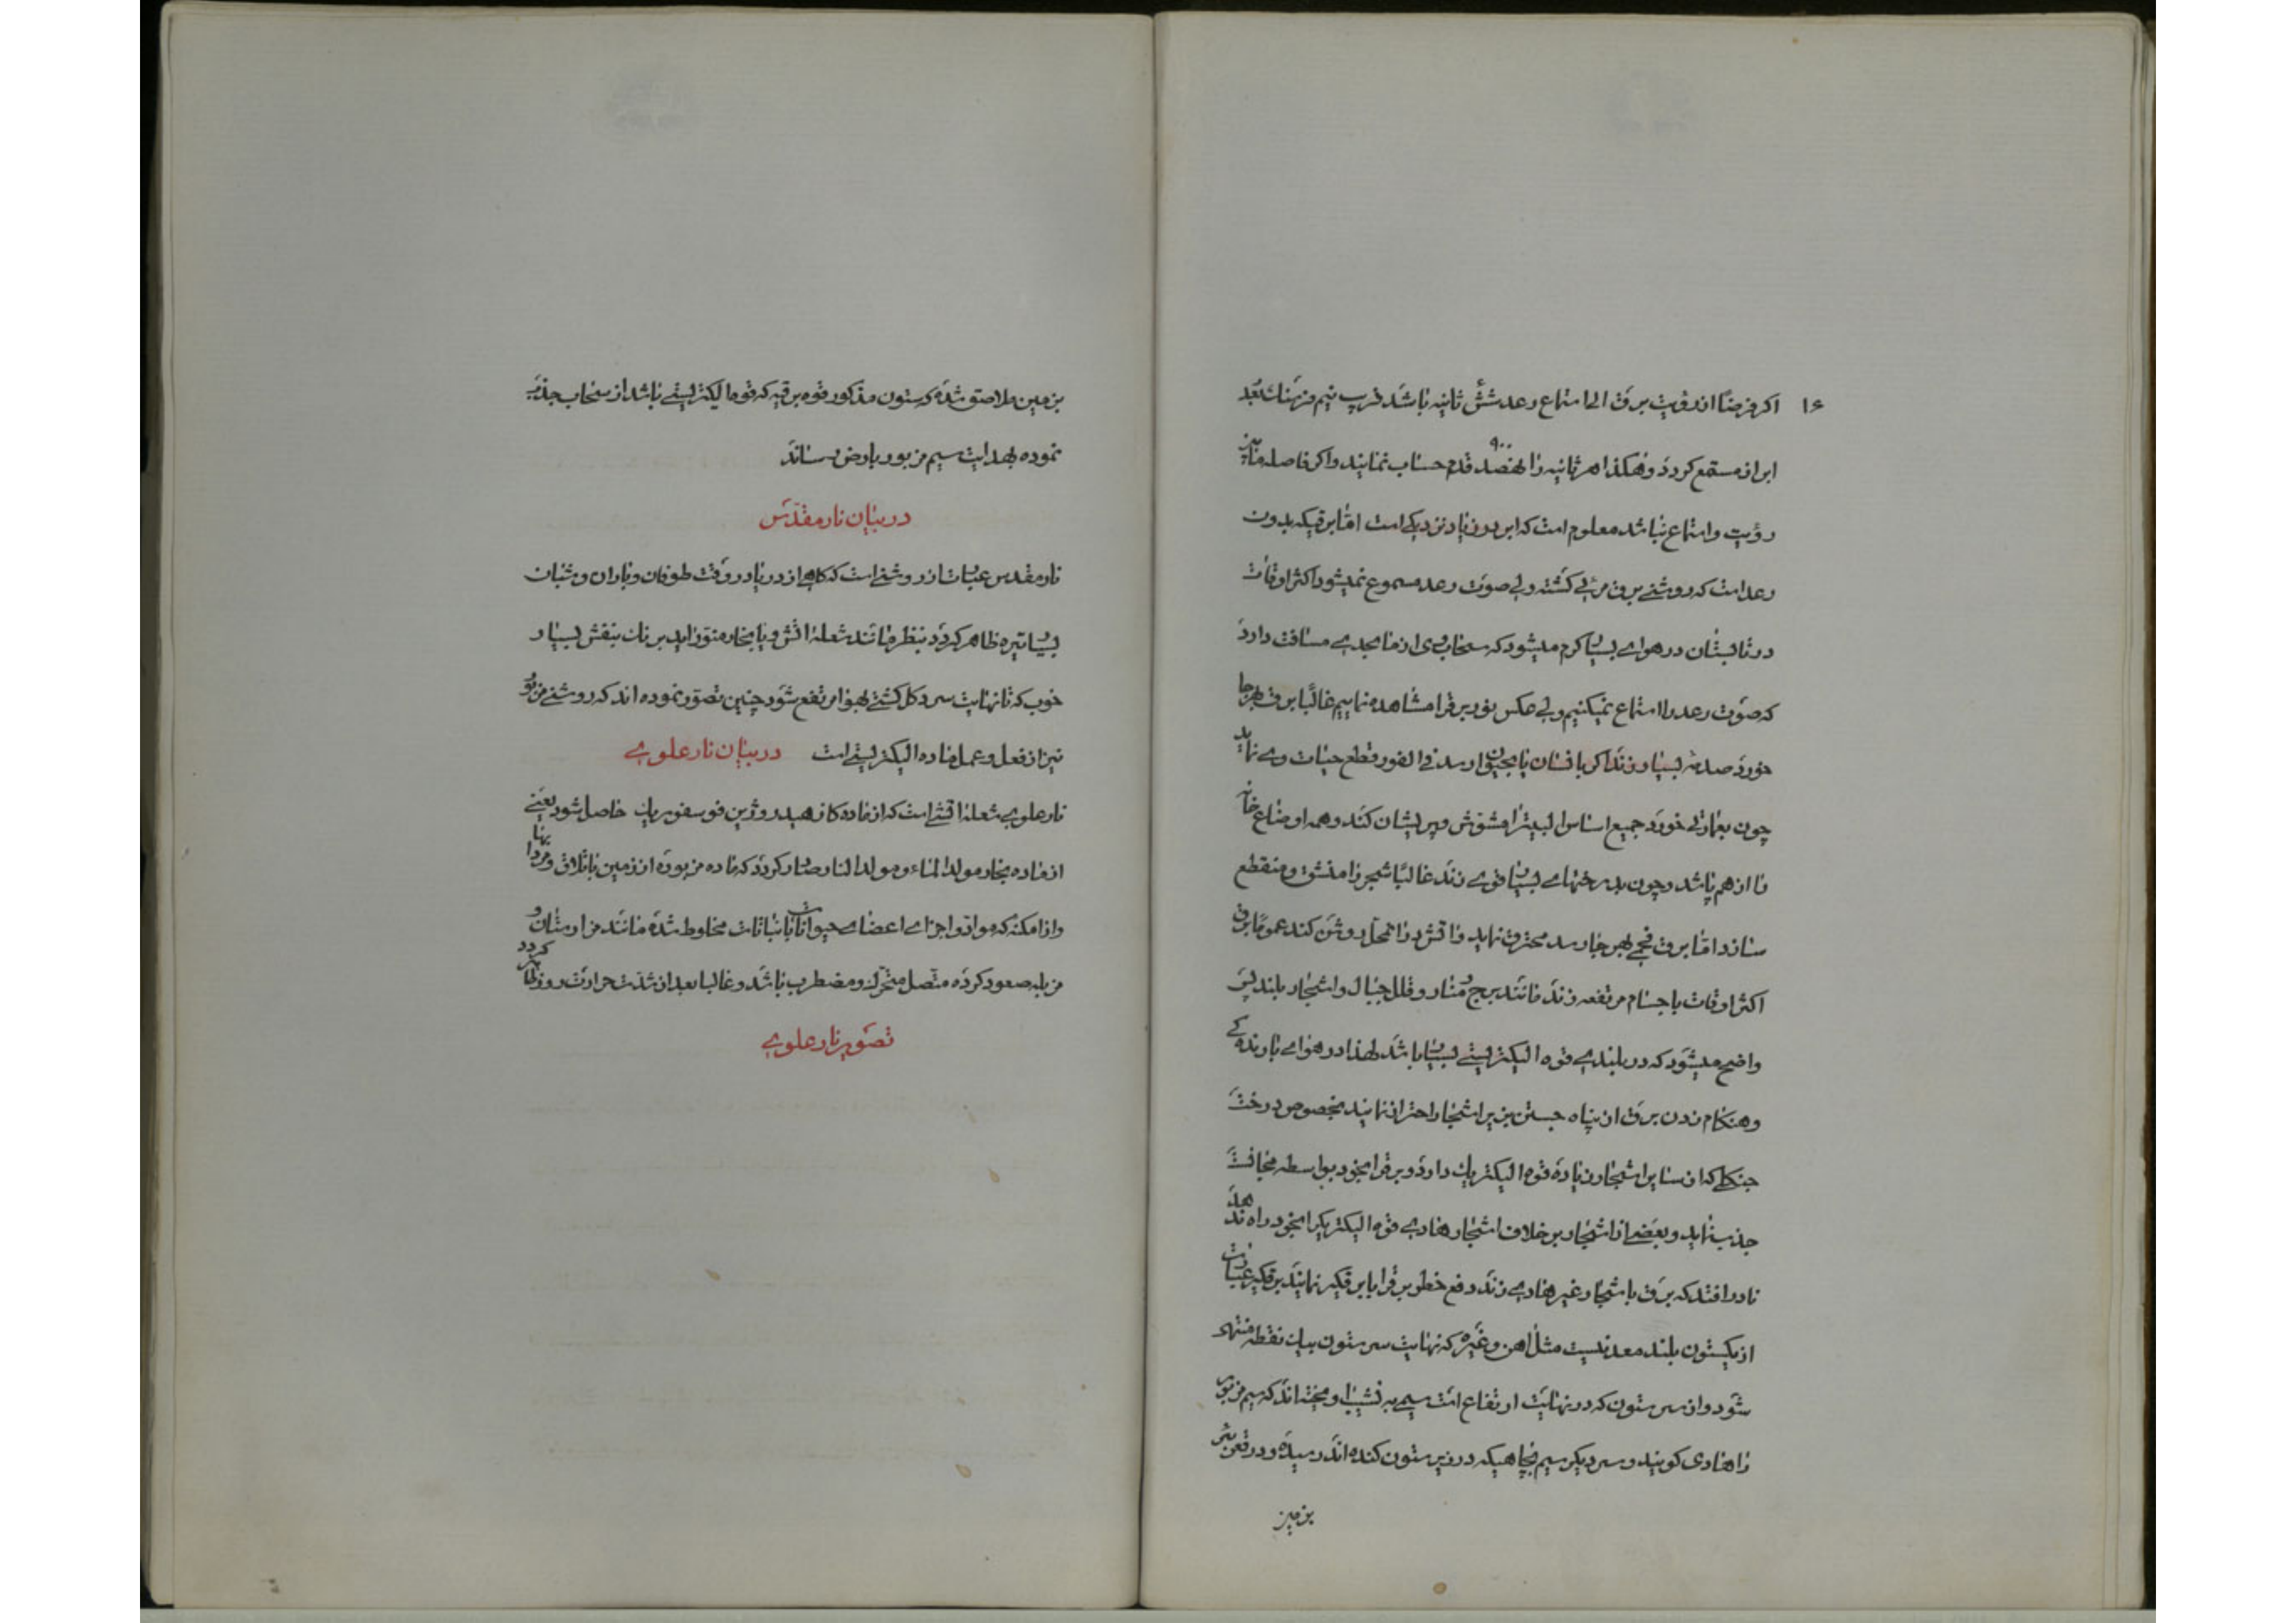 ۱۶
اکر فرضاً از رؤیت برق الی استماع رعد شش ثانیه باشد قریب نیم فرسنک بُعد
ابر از مستمع کردد و هکذا هر ثانیه را نهصد ۹۰۰ قدم حساب نمایند و اکر فاصله مابین
رؤیت و استماع نباشد معلوم است که ابر در زیاد نزدیکی است امّا برقیکه بدون
رعد است که روشنی برق مرئی کشته ولی صوت رعد مسموع نمیشود اکثر اوقات
در تابستان در هوای بسیار کرم میشود که سحاب وی از ما بحدی مسافت دارد
که صوت رعد را استماع نمیکنیم ولی عکس نور برقرا مشاهده مینماییم غالباً برق بهر جا
خورد صدمه بسیار زند اکر بانسان یا بحیوان رسد فی الفور قطع حیات وی نماید
چون بعمارتی خورد جمیع اساس البیترا مشوّش و پریشان کند و همه اوضاع خانه
را از هم پاشد و چون بدرختهای بسیار قوی زند غالباً شجر را منشق و منقطع
سازد امّا برق فحمی بهر جا رسد محترق نماید و آتش در انمحل روشن کند عموماً برق
اکثر اوقات باجسام مرتفعه زند مانند برج و منار و قلل جبال و اشجار بلند پس
واضح میشود که در بلندی قوه الیکتریستی بسیار باشد لهذا در هوای بارندکی
و هنکام زدن برق از پناه جستن بزیر اشجار احتراز نمایند بخصوص درخت
جنکلی که از سایر اشجار زیاده قوه الیکتریک دارد و برقرا بخود بواسطه مجانست
جذب نماید و بعضی از اشجار برخلاف اشجار هادی قوه الیکتریکرا بخود راه ندهد
نادرا افتد که برق باشجار غیر هادی زند دفع خطر برقرا با برقکیر نمایند برقکیر عبارت
از یکستون بلند معدنیست مثل آهن و غیره که نهایت سر ستون بیک نقطه منتهی
شود و از سر ستون که در نهایت ارتفاع است سیمی به نشیب آویخته اند که سیم مزبور
را هادی کویند و سر دیکر سیم بچاهیکه در زیر ستون کنده اند رسیده و در قعر بئر
بزمین
بزمین ملاصق شده که ستون مذکور قوه برقیه که قوه الیکتریستی باشد از سحاب جذب
نموده بهدایت سیم مزبور بارض رساند
در بیان نار مقدّس
نار مقدس عبارت از روشنی است که کاهی از دریا در وقت طوفان و باران و شبان
بسیار تیره ظاهر کردد بنظر مانند شعلهٔ آتش و یا بخار منوّر آید برنک بنفش بسیار
خوب که تا نهایت سر دکل کشتی بهوا مرتفع شود چنین تصوّر نموده اند که روشنی مزبور
نیز از فعل و عمل ماده الیکتریستی است در بیان نار علوی
نار علوی شعلهٔ آتشی است که از ماده کاز هیدروژین فوسفوریک حاصل شود یعنی
از ماده بخار مولد الماء و مولد النار صادر کردد که ماده مزبوره از زمین باتلاق و مردابها
و از امکنه که مواد و اجزای اعضای حیوانات با نباتات مخلوط شده مانند مزارستان و
مزبله صعود کرده متّصل متحرّک و مضطرب باشد و غالبا بعد از شدّت حرارت روز ظاهر کردد
تصویر نار علوی